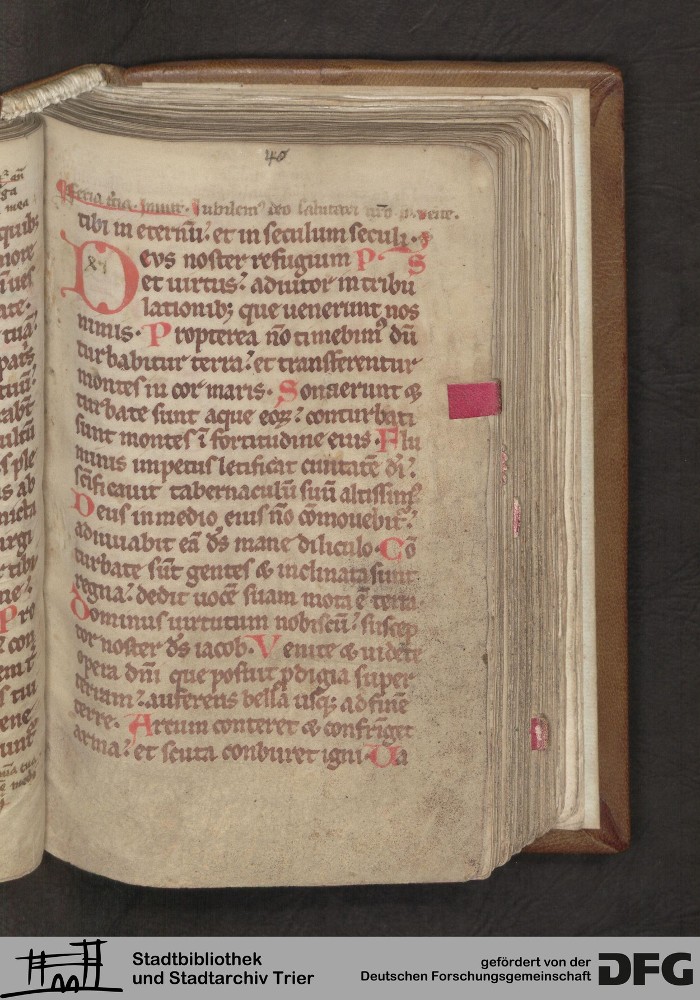 40
feria Jubilem⁹ deo salutari nr̄o
tibi in eternū: et in seculum seculi. PS
Deus noster refugium
xli
et uirtus: adiutor in tribu
lationib; que uenerunt nos
nimis. Propterea nō timebim⁹ dū
turbabitur terra: et transferentur
montes in cor maris. Sonuerunt &
turbate sunt aque eoꝝ: conturbati
sunt montes ī fortitudine eius. Flu
minis impetus letificat ciuitatē dī:
sc̄ificauit tabernaculū suū altissim⁹.
Deus in medio eius nō cōmouebit̄:
adiuuabit eā ds̄ mane diliculo. Cō
turbate sūt gentes & inclinata sunt
regna: dedit uocē suam mota ē terra.
Dominus uirtutum nobiscū: suscep
tor noster ds̄ iacob. Venite & uidete
opera dn̄i que posuit ꝓdigia super
terram: auferens bella usq; ad finē
terre. Arcum conteret & confrīget
arma: et scuta conburet igni. Ua
quib;
more
tuā:
ab
Pro
Stadtbibliothek
und Stadtarchiv Trier
gefördert von der
Deutschen Forschungsgemeinschaft
DFG